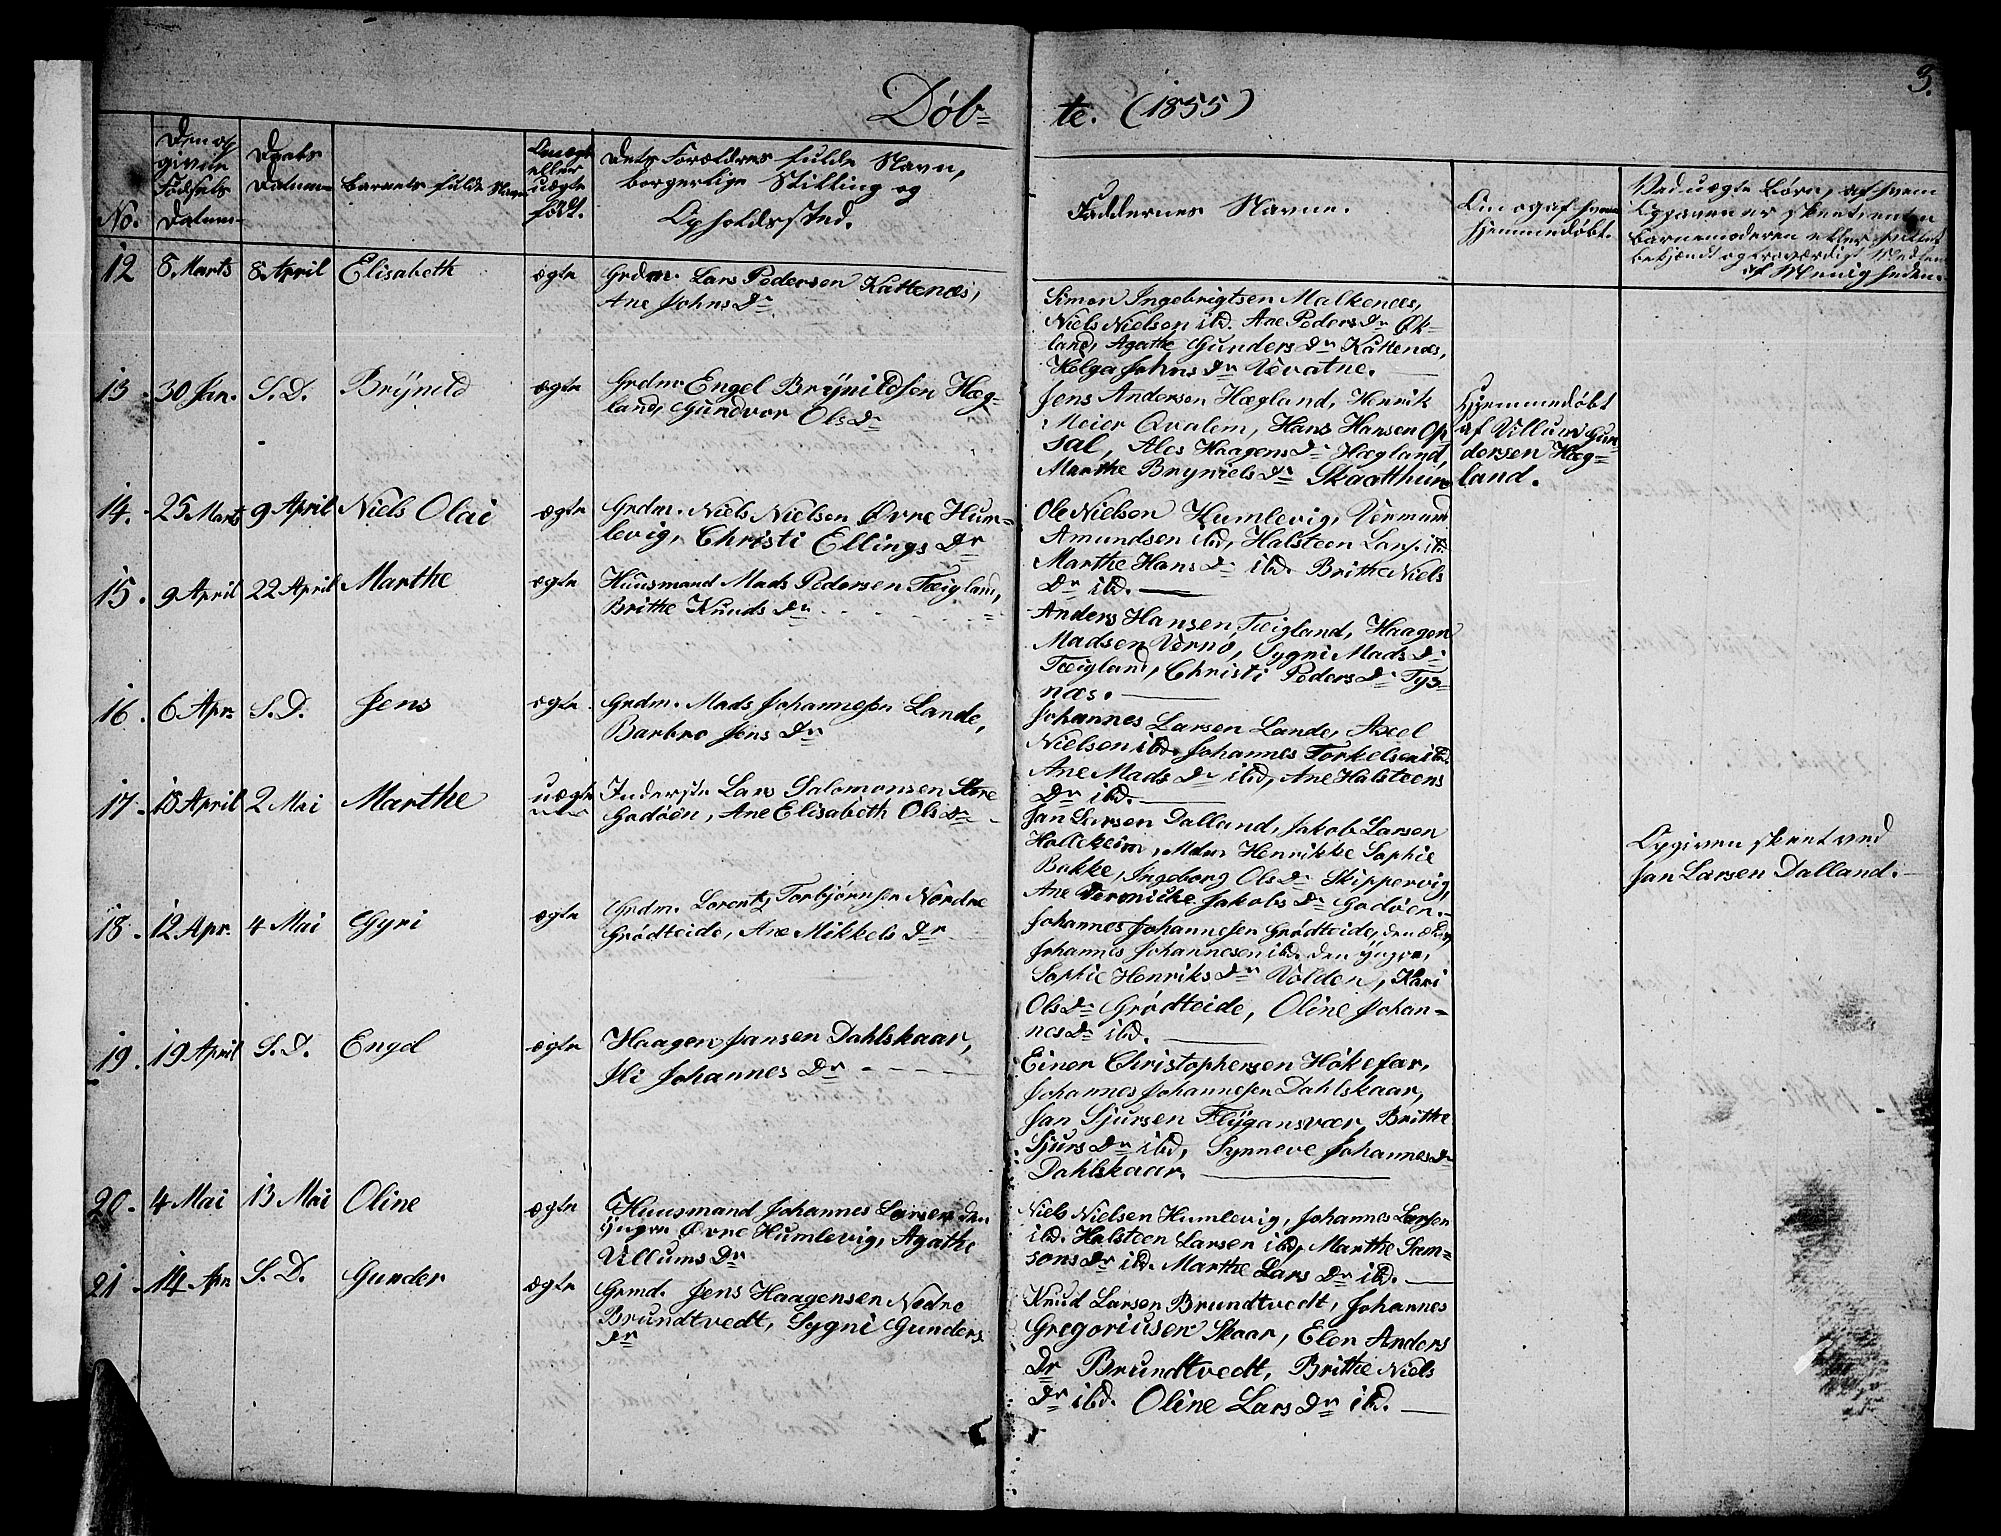 3.
Döb= te. (1855)
No.
Den op
givne
Fødsels
Datum.
Daabs
Datum
Barnets fulde Navn
Om ægte
eller
uægte
født.
Dets Forældres fulde Navn,
borgerlige Stilling og
Opholdssted.
Faddernes Navne.
Om og af hvem
hjemmedøbt.
Ved uægte Børn, af hvem
Opgaven er skeet, enten
Barnemoderen eller hvilket
bekjendt og troværdigt Medlem
af Menigheden.
12 8. Marts 8. April Elisabeth ægte Grdm. Lars Pedersen Kattenæs,
Ane Johns Dr
Simon Ingebrigtsen Malkenæs,
Niels Nielsen ibd. Ane Peders Dr Øk=
land, Agathe Gunders Dr Kattenæs,
Helga Johns Dr Vevatne.
13. 30 Jan. S. D. Brÿnild ægte Grdm. Engel Brÿnildsen Hæg=
land, Gundvor Ols Dr
Jens Andersen Hægland, Henrik
Meier Qvalem, Hans Hansen Op
sal, Ales Haagens Dr Hægland,
Marthe Bryniels Dr Skaathun
Hjemmedøbt
af Villum Gun
dersen Hæg=
land.
14. 25 Marts 9 April Niels Olai ægte Grdm. Niels Nielsen Øvre Hum=
levig, Christi Ellings Dr
Ole Nielsen Humlevig, Vermund
Amundsen ibd, Halsteen Lars. ibd.
Marthe Hans Dr ibd. Brithe Niels
Dr ibd.
15. 9 April 22 April Marthe ægte Huusmand Mads Pedersen Tæigland,
Brithe Knuds Dr
Anders Hansen Tæigland, Haagen
Madsen Vernø, Sygni Mads Dr
Tæigland, Christi Peders Dr Tys=
næs.
16. 6 Apr. S. D. Jens ægte Grdm. Mads Johannesen Lande,
Barbro Jens Dr
Johannes Larsen Lande, Axel
Nielsen ibd. Johannes Torkelsen ibd.
Ane Mads Dr ibd, Ane Halsteens
Dr ibd.
17. 18 April 2 Mai Marthe uægte Inderste Lars Salomonsen Store
Godøen, Ane Elisabeth Ols Dr
Jan Larsen Dalland, Jakob Larsen
Holleheim, Mdm Henrikke Sophie
Bakke, Ingeborg Ols Dr Skippervig,
Ane Vermikke Jakobs Dr Godøen.
Opgiven skeet ved
Jan Larsen Dalland.
18. 12 Apr. 4 Mai Gyri ægte Grdm. Lorentz Torbjørnsen Nordre
Grødteide, Ane Mikkels Dr
Johannes Johannesen Grødteide, den ældre,
Johannes Johannesen ibd. den yngre,
Sophie Henriks Dr Volden, Kari
Ols Dr Grødteide, Oline Johan=
nes Dr ibd.
19. 19 April S. D. Engel ægte Haagen Jansen Dahlskaar,
Ili Johannes Dr
Einer Christophersen Høkefar,
Johannes Johannesen Dahlskaar,
Jan Sjursen Flÿgansvær, Brithe
Sjurs Dr ibd, Synneve Johannes Dr
Dahlskaar.
20. 4 Mai 13 Mai Oline ægte Huusmand Johannes Larsen den
yngre Øvre Humlevig, Agathe
Villums Dr
Niels Nielsen Humlevig, Johannes Larsen
ibd. Halsteen Larsen ibd, Marthe Sam=
sons Dr ibd. Marthe Lars Dr ibd.
21. 14 Apr S. D. Gunder ægte Grmd. Jens Haagensen Nedre
Brundtvedt, Sygni Gunders
Dr
Knud Larsen Brundtvedt, Johannes
Gregoriusen Skaar, Elen Anders
Dr Brundtvedt, Brithe Niels
Dr ibd. Oline Lars Dr ibd.